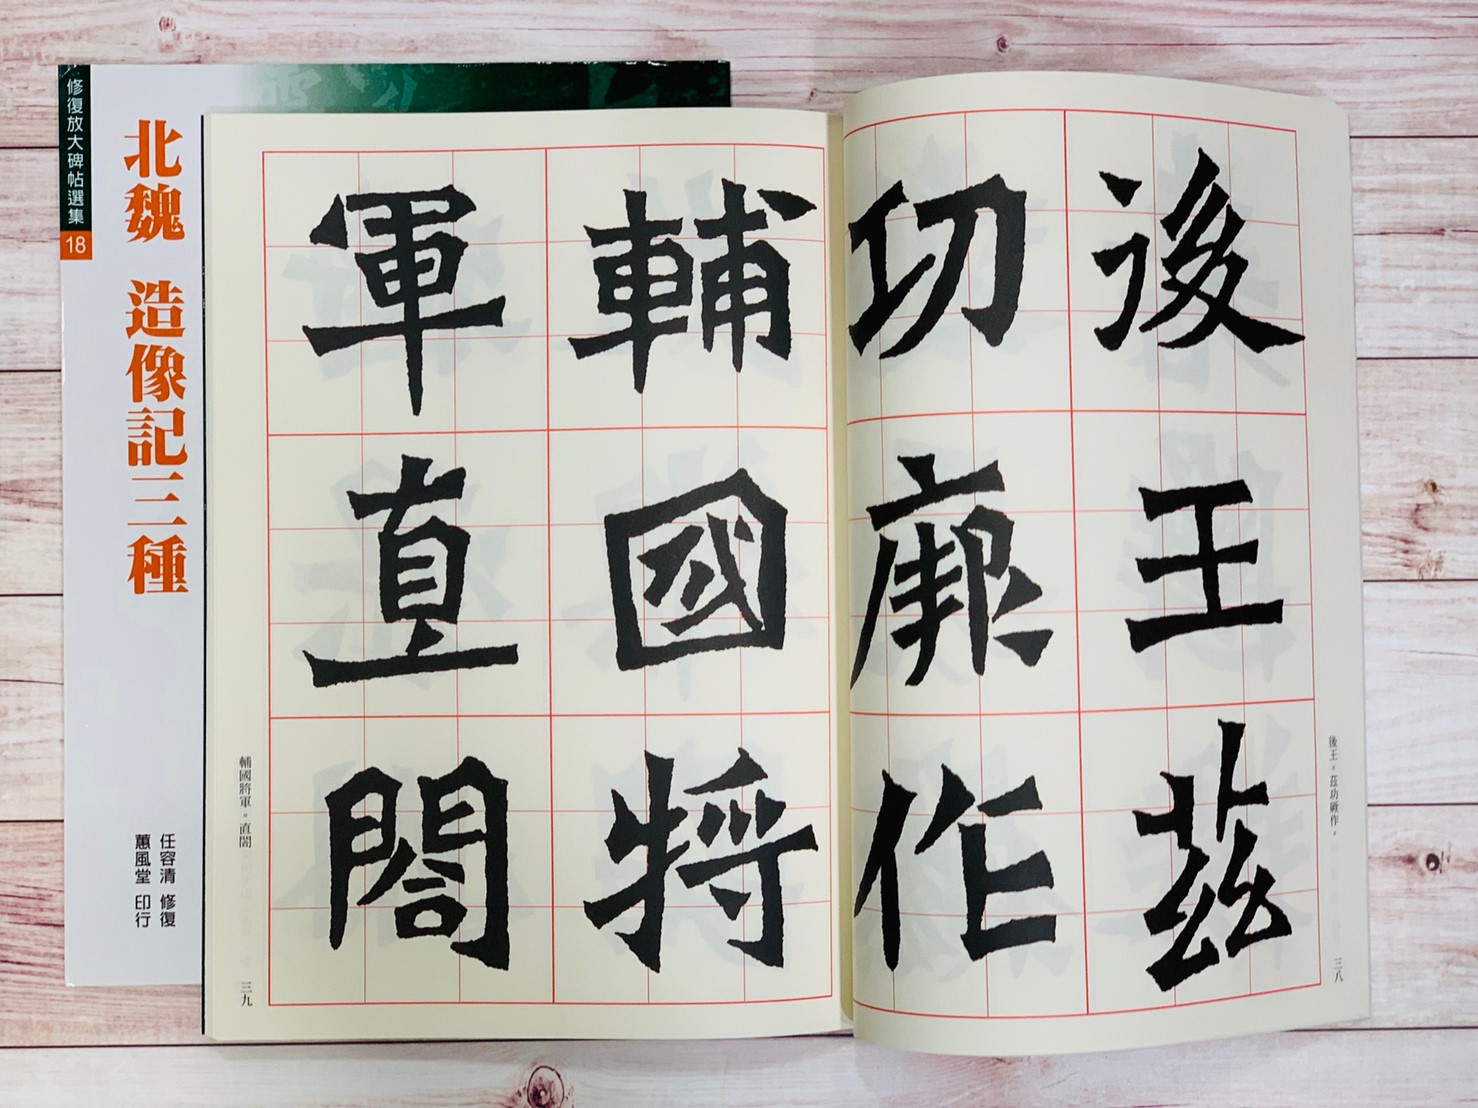 修復放大碑帖選集
18
北魏 造像記三種
任容清 修復
蕙風堂 印行
後王茲
功厥作
後王。茲功厥作。
三八
輔國將
軍直閤
輔國將軍。直閤
三九